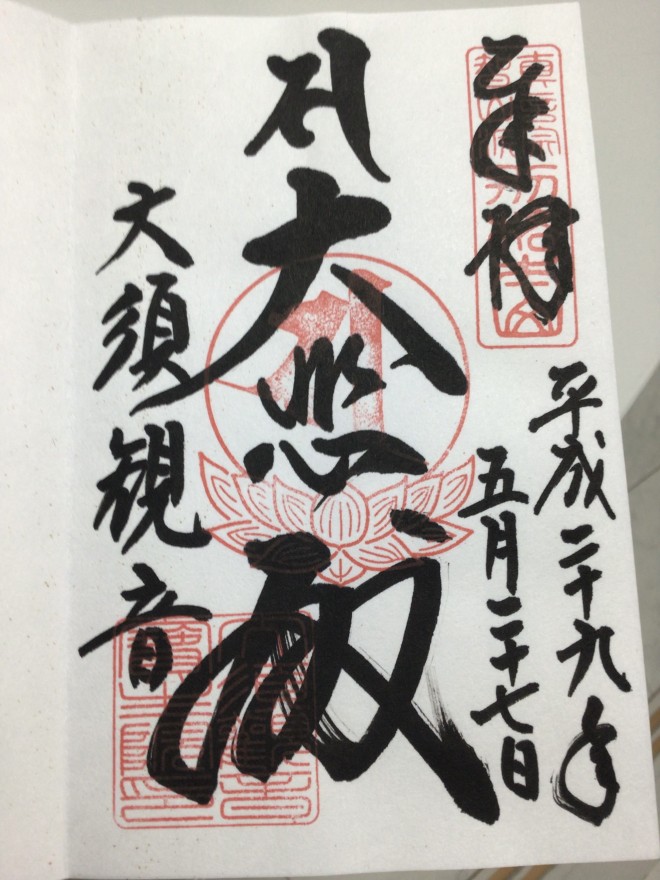 奉拝
平成二十九年
五月二十七日
大悲殿
大須観音